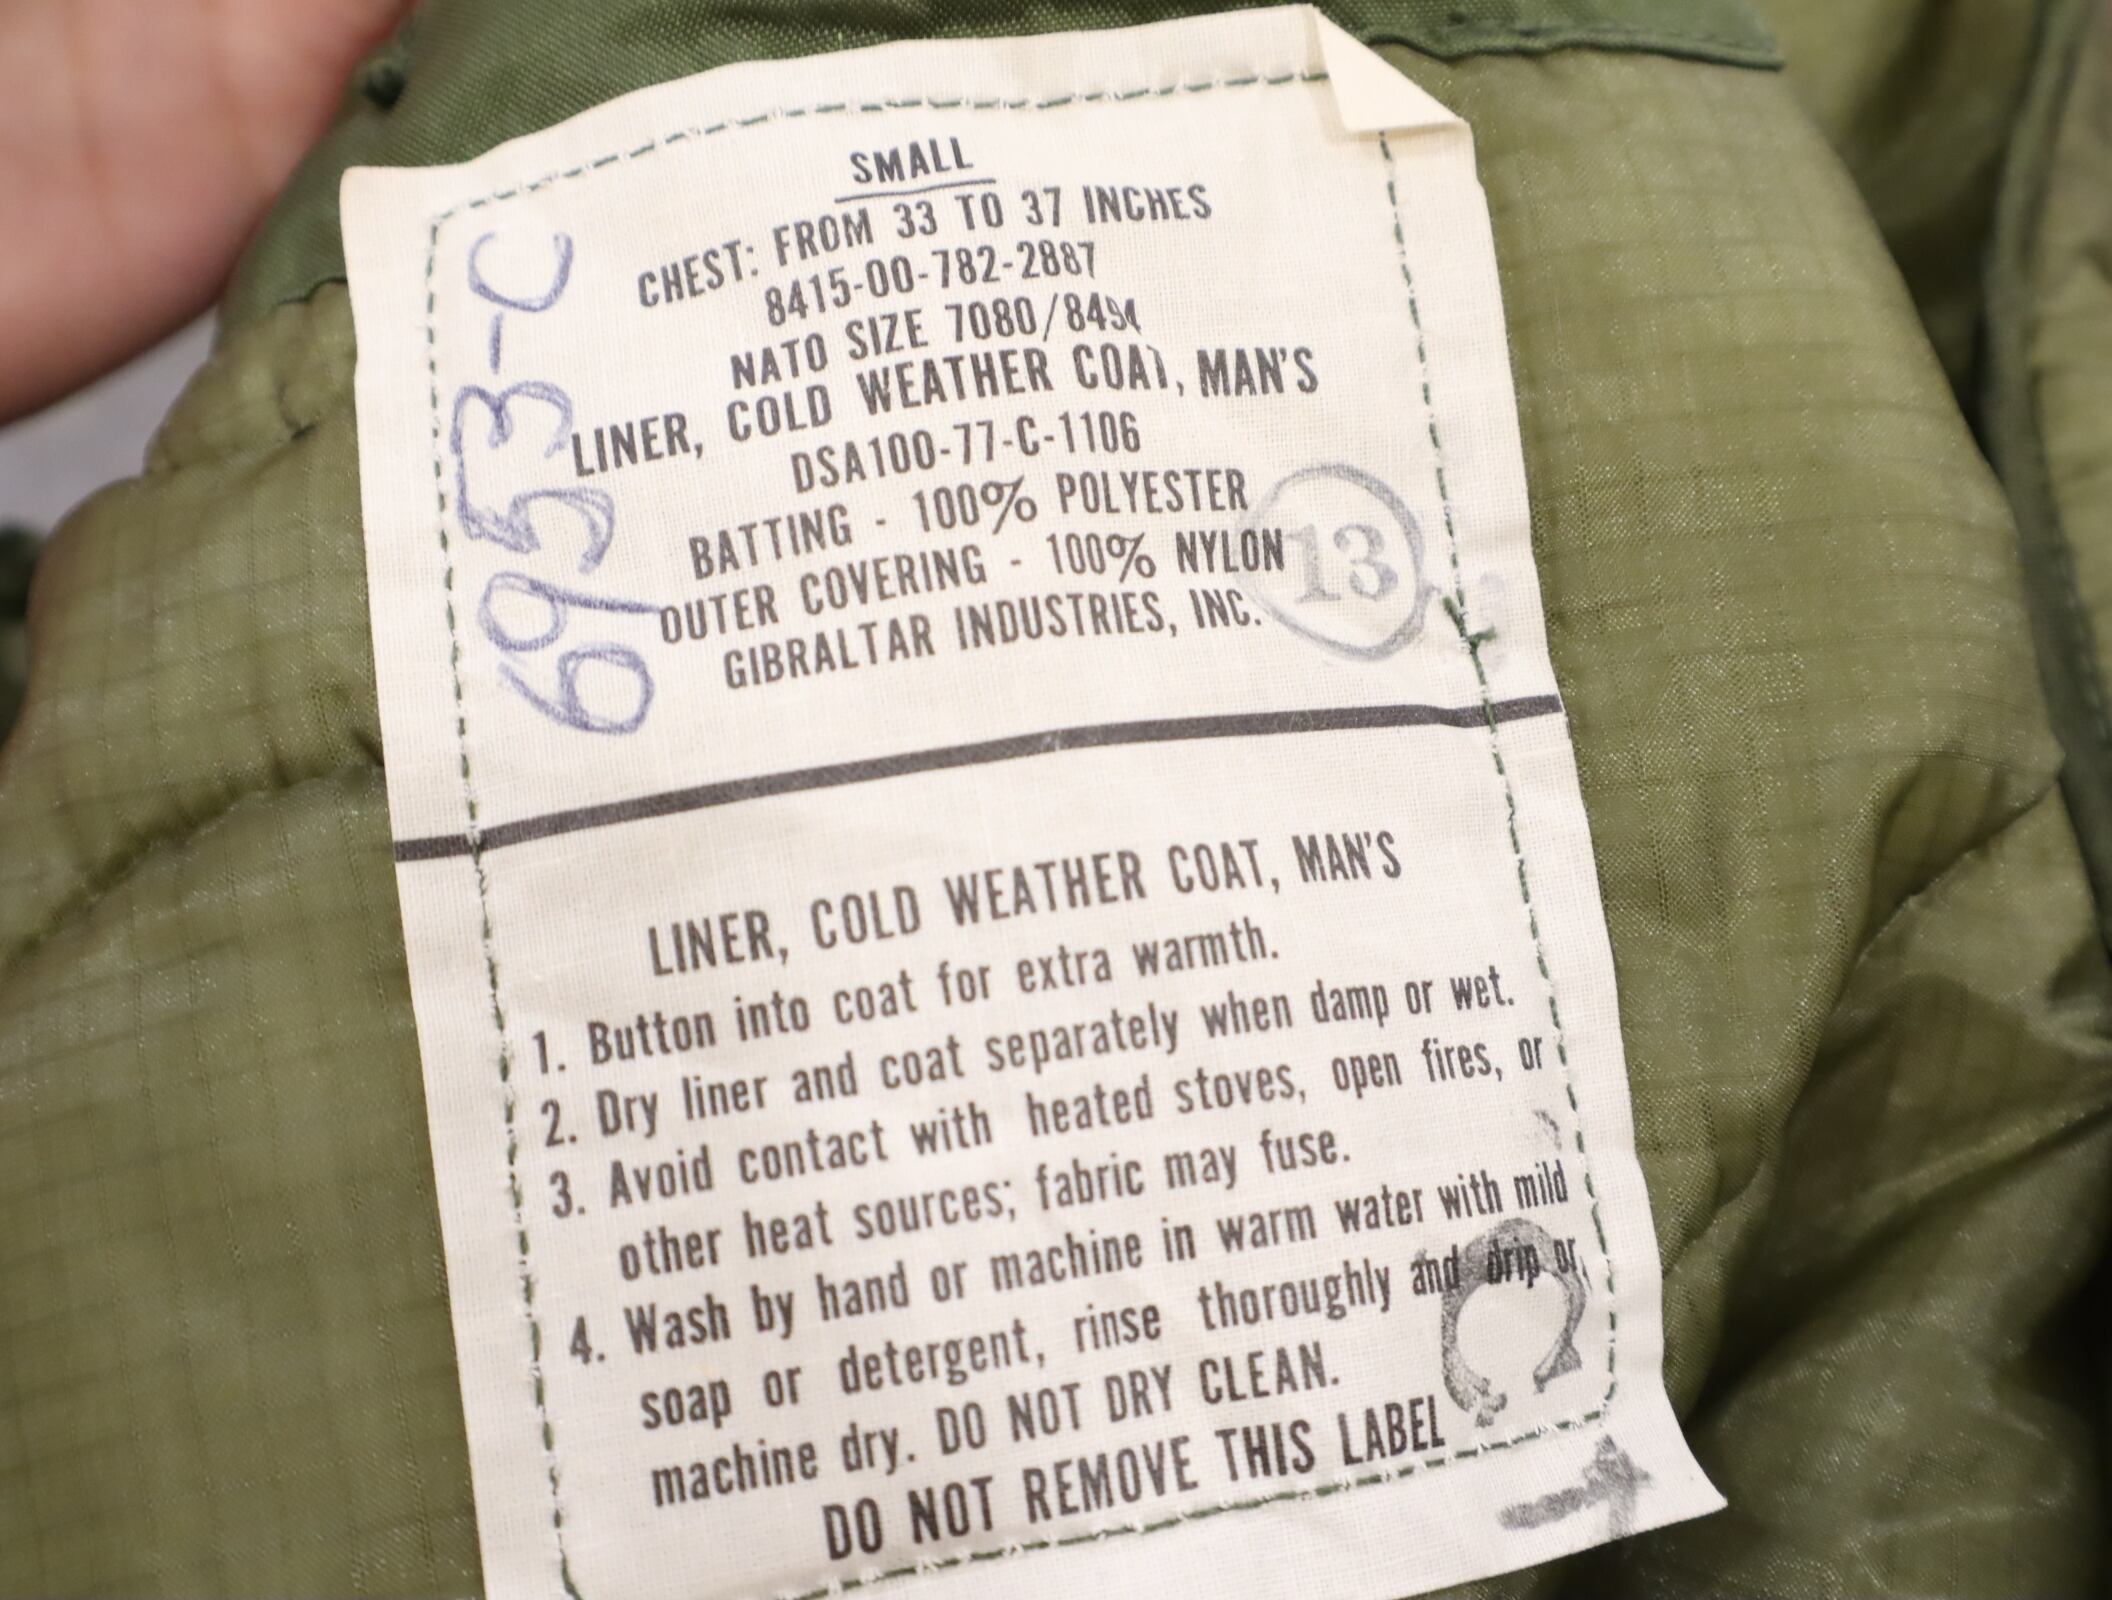 SMALL
CHEST: FROM 33 TO 37 INCHES
8415-00-782-2887
NATO SIZE 7080/8494
LINER, COLD WEATHER COAT, MAN'S
DSA100-77-C-1106
BATTING - 100% POLYESTER
OUTER COVERING - 100% NYLON
GIBRALTAR INDUSTRIES, INC.
13
6953-C
LINER, COLD WEATHER COAT, MAN'S
1. Button into coat for extra warmth.
2. Dry liner and coat separately when damp or wet.
3. Avoid contact with heated stoves, open fires, or
other heat sources; fabric may fuse.
4. Wash by hand or machine in warm water with mild
soap or detergent, rinse thoroughly and drip or
machine dry. DO NOT DRY CLEAN.
DO NOT REMOVE THIS LABEL